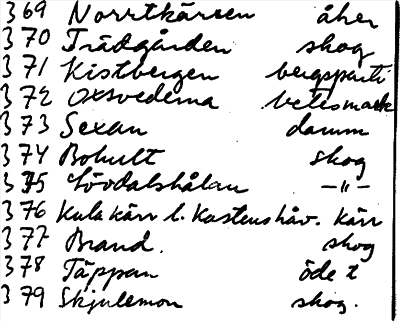 369 Norrtkärren åker
370 Trädgården skog
371 Kistbergen bergsparti
372 Oxsvederna betesmark
373 Sexan damm
374 Bohult skog
375 Lövdalshålan -"-
376 Kulakärr l. kärr
377 Brand. skog
378 Täppan öde t
379 Skjulemon skog.